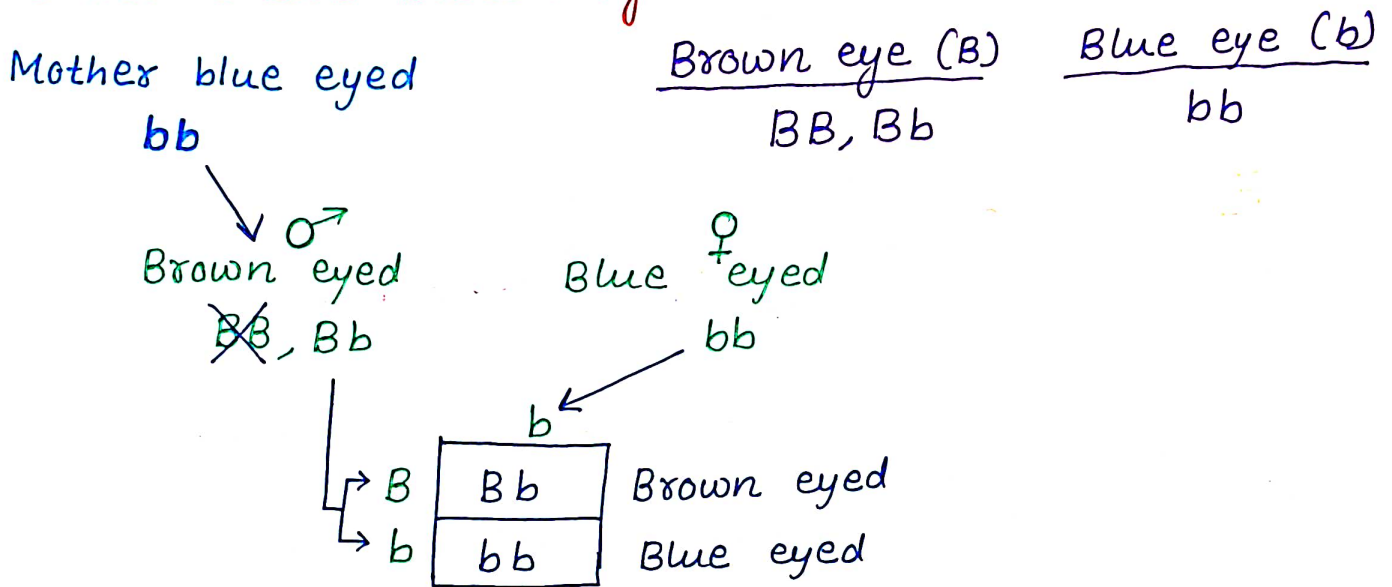 Mother blue eyed
bb
Brown eye (B) Blue eye (b)
BB, Bb bb
♂ ♀
Brown eyed Blue eyed
BB, Bb bb
b
B Bb Brown eyed
b bb Blue eyed